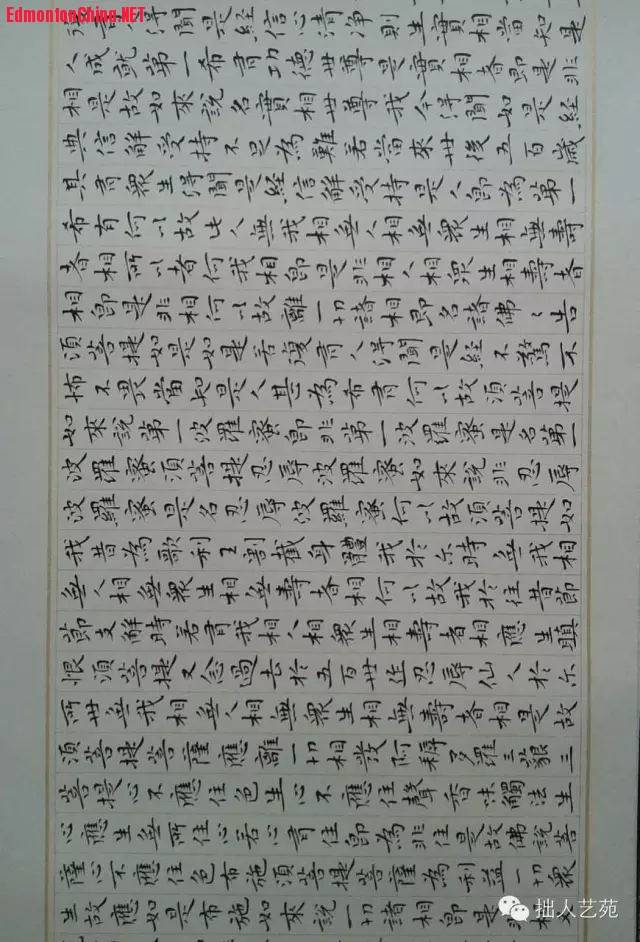 EdmontonChina.NET
得聞是經信心清淨則生實相當知是
人成就第一希有功德世尊是實相者即是非
相是故如來說名實相世尊我今得聞如是經
典信解受持不足為難若當來世後五百歲
其有衆生得聞是經信解受持是人即為第一
希有何以故此人無我相無人相無衆生相無壽
者相所以者何我相即是非相人相衆生相壽者
相即是非相何以故離一切諸相即名諸佛〻告
須菩提如是如是若復有人得聞是經不驚不
怖不畏當知是人甚為希有何以故須菩提
如來說第一波羅蜜即非第一波羅蜜是名第一
波羅蜜須菩提忍辱波羅蜜如來說非忍辱
波羅蜜是名忍辱波羅蜜何以故須菩提如
我昔為歌利王割截身體我於尔時無我相
無人相無衆生相無壽者相何以故我於往昔節
節支解時若有我相人相衆生相壽者相應生瞋
恨須菩提又念過去於五百世作忍辱仙人於尔
所世無我相無人相無衆生相無壽者相是故
須菩提菩薩應離一切相發阿耨多羅三藐三
菩提心不應住色生心不應住聲香味觸法生
心應生無所住心若心有住即為非住是故佛說菩
薩心不應住色布施須菩提菩薩為利益一切衆
生故應如是布施如來說一切諸相即是
拙人艺苑